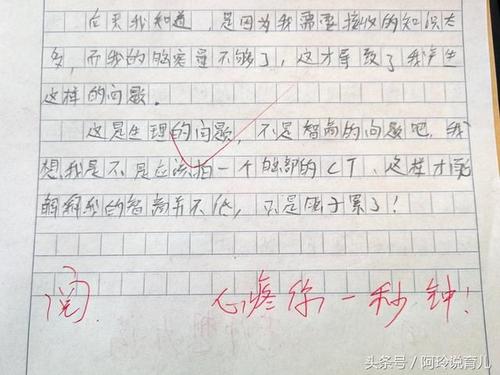 我知道,是因为我需要接收的知识太
多,而我的脑容量不够了,这才导致了我产生
这样的问题。
这是生理的问题,不是智商的问题吧。我
想我是不是应该拍一个脑部的CT,这样才能
解释我的智商并不低,只是脑子累了!
阅 心疼你一秒钟!
头条号 / 阿玲说育儿